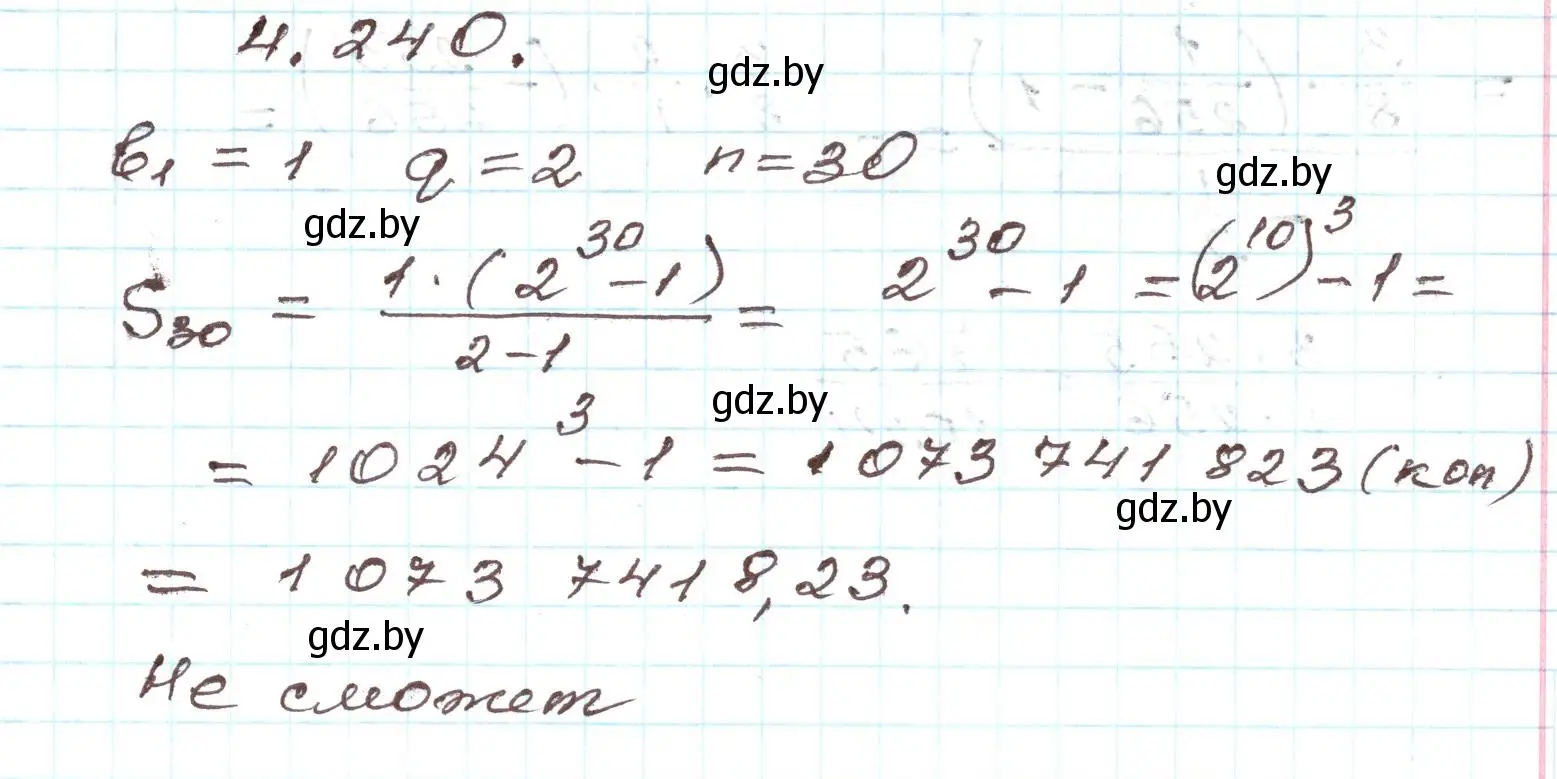 4.240.
gdz.by
b₁ = 1 q = 2 n = 30
gdz.by
gdz.by
S₃₀ = \frac{1 · (2³⁰ - 1)}{2 - 1} = 2³⁰ - 1 = (2¹⁰)³ - 1 =
gdz.by
= 1024³ - 1 = 1 073 741 823 (коп)
gdz.by
= 1 073 741 8,23.
gdz.by
Не сможет